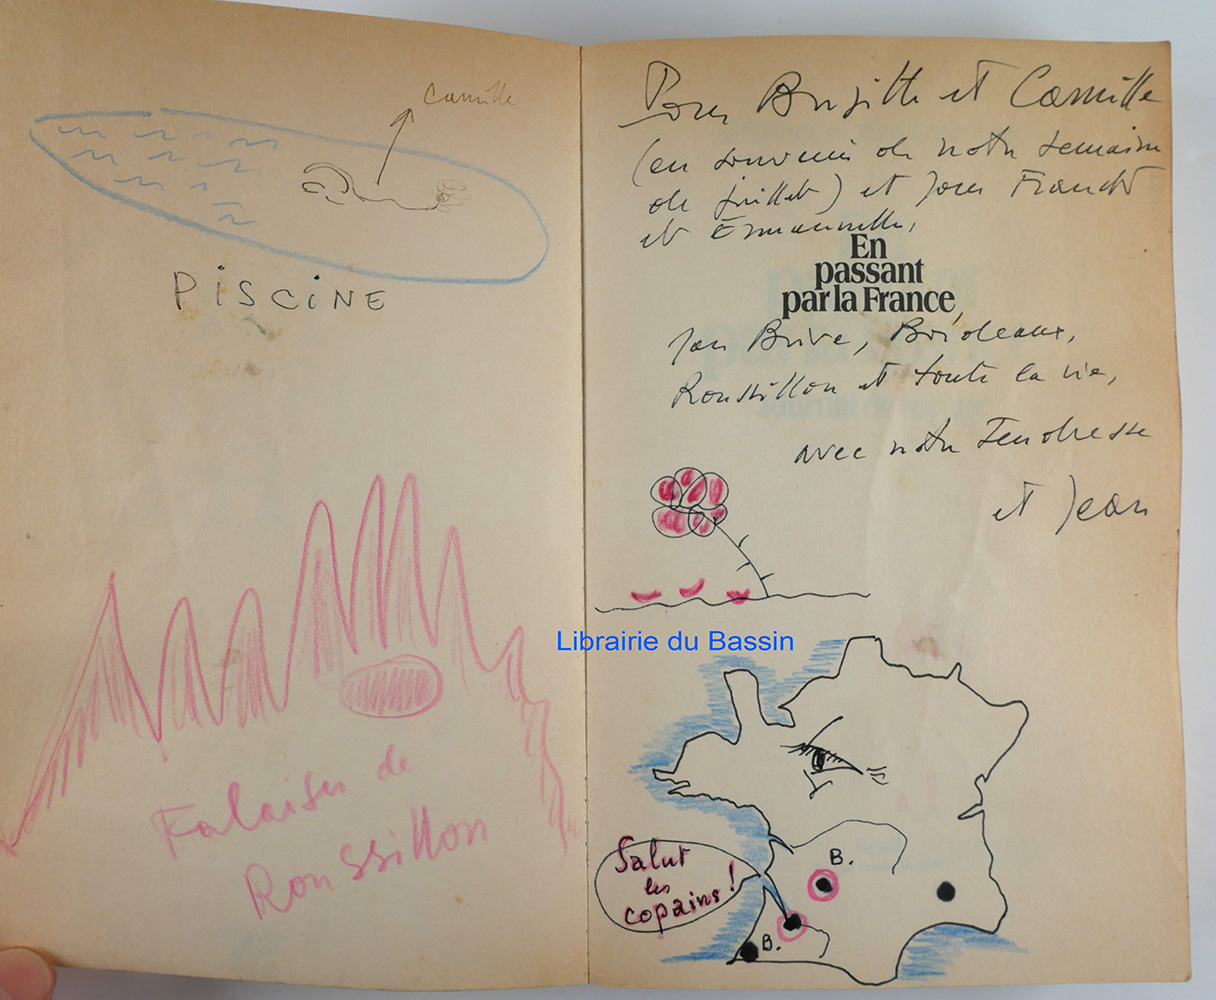 Camille
PISCINE
Falaises de
Roussillon
Pour Brigitte et Camille
(en souvenir de notre semaine
de juillet) et pour Franck
et Emmanuelle,
En
passant
par la France,
pour Brive, Bordeaux,
Roussillon et toute la vie,
avec notre Tendresse
et Jean
Librairie du Bassin
Salut
les
copains!
B.
B.